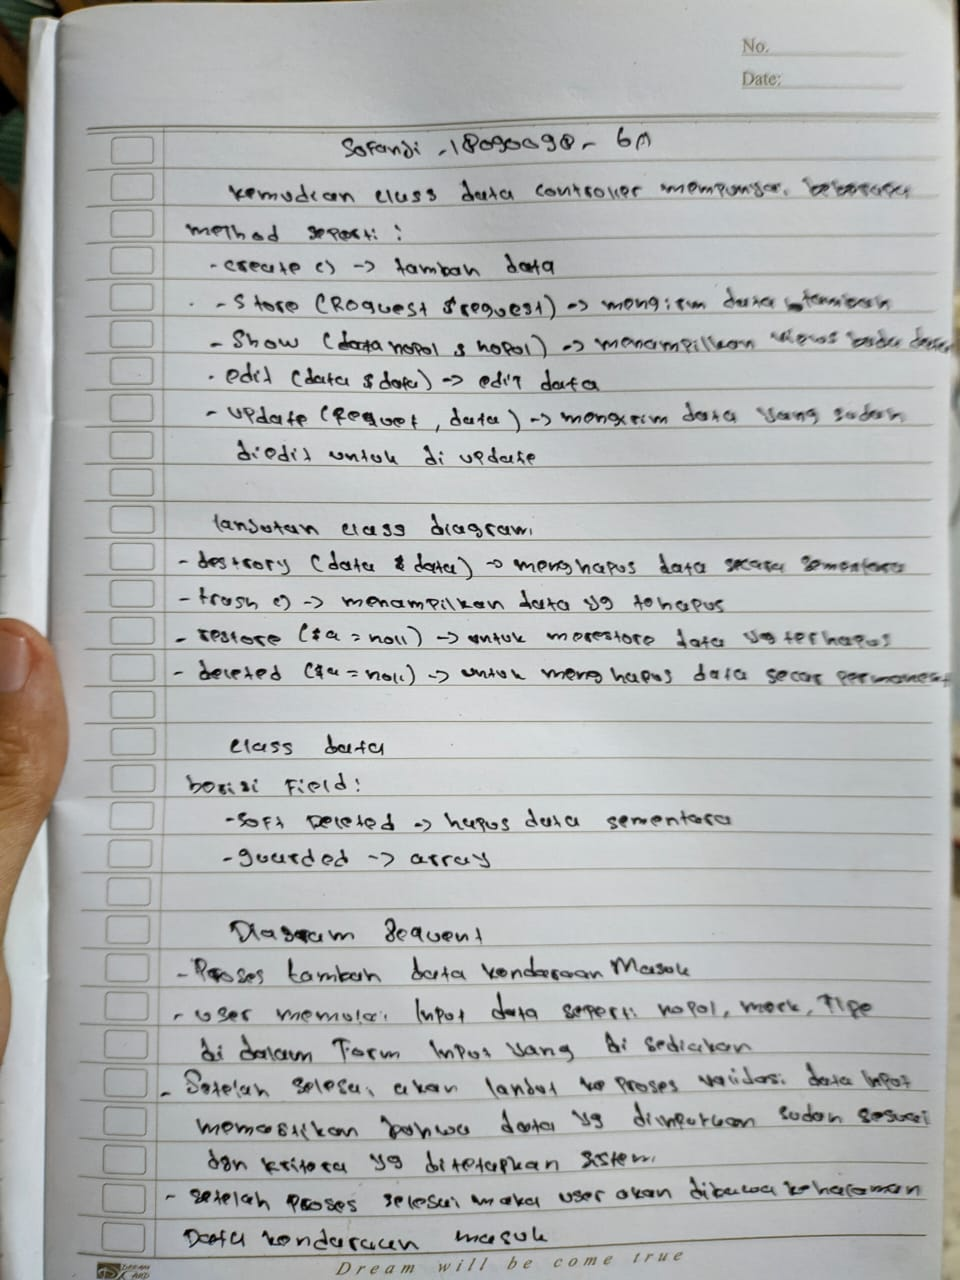 No.
Date:
Sofandi - 18090098 - 6A
kemudian class data controller mempunyai beberapa
method seperti :
- create () -> tambah data
- Store (Request $request) -> mengirim data
- Show (data nopol $ nopol) -> menampilkan
- edit (data $ data) -> edit data
- update (Request, data) -> mengirim data yang sudah
diedit untuk di update
lanjutan class diagram
- destrory (data $ data) -> menghapus data secara sementara
- trash () -> menampilkan data yg tehapus
- restore ($a = null) -> untuk merestore data yg terhapus
- deleted ($a = null) -> untuk menghapus data secar permanent
class data
berisi Field :
- Soft Deleted -> hapus data sementara
- guarded -> array
Diagram Sequent
- Proses tambah data kendaraan Masuk
- user memulai Input data seperti nopol, merk, Tipe
di dalam Form Input yang di sediakan
- Setelah selesai akan lanjut ke proses validasi data Input
memastikan bahwa data yg diinputkan sudah sesuai
dgn kritera yg ditetapkan sistem
- setelah proses selesai maka user akan dibawa ke halaman
Data kendaraan masuk
Dream will be come true